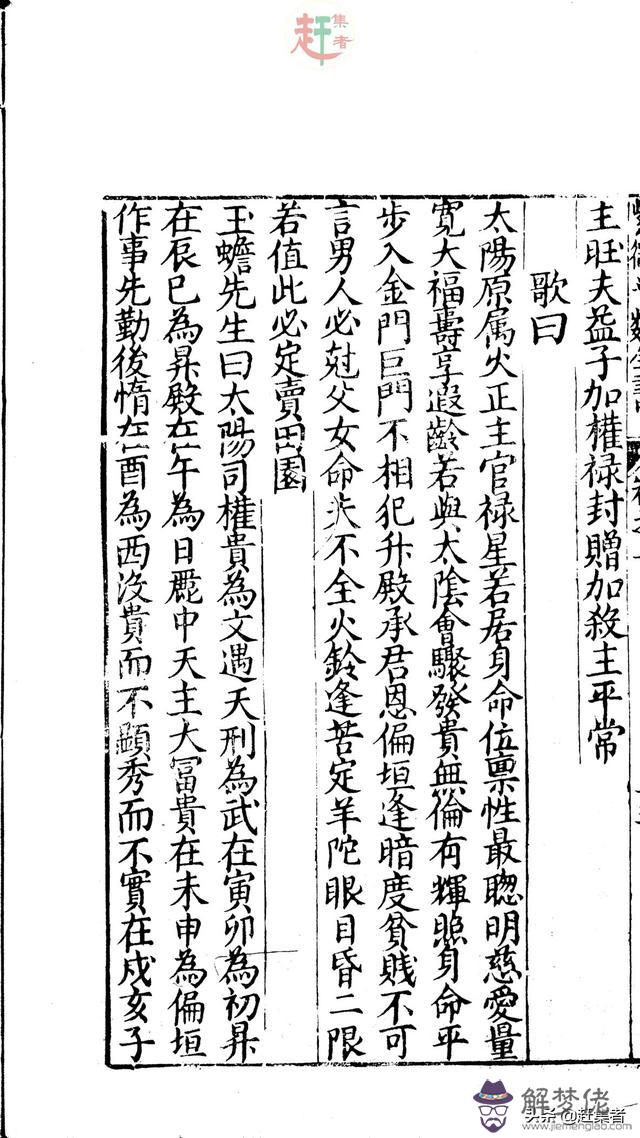 赶集者
主旺夫益子加權禄封贈加殺主平常
歌曰
太陽原属火正主官禄星若居身命位禀性最聰明慈愛量
寛大福壽享遐齡若與太陰會驟發貴無倫有輝照身命平
步入金門巨門不相犯升殿承君恩偏垣逢暗度貧賤不可
言男人必尅父女命夫不全火鈴逢苦定羊陀眼目昏二限
若值此必定賣田園
玉蟾先生曰太陽司權貴為文遇天刑為武在寅卯為初昇
在辰巳為昇殿在午為日麗中天主大冨貴在未申為偏垣
作事先勤後惰在酉為西没貴而不顯秀而不實在戍亥子
解梦佬
头条@赶集者
www.jiemenglao.com